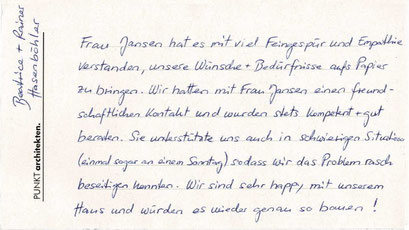 Beatrice + Rainer
Hasenböhler
PUNKTarchitekten.
Frau Jansen hat es mit viel Feingespür und Empathie
verstanden, unsere Wünsche + Bedürfnisse aufs Papier
zu bringen. Wir hatten mit Frau Jansen einen freund-
schaftlichen Kontakt und wurden stets kompetent + gut
beraten. Sie unterstützte uns auch in schwierigen Situation
(einmal sogar an einem Sonntag) sodass wir das Problem rasch
beseitigen konnten. Wir sind sehr happy mit unserem
Haus und würden es wieder genau so bauen!